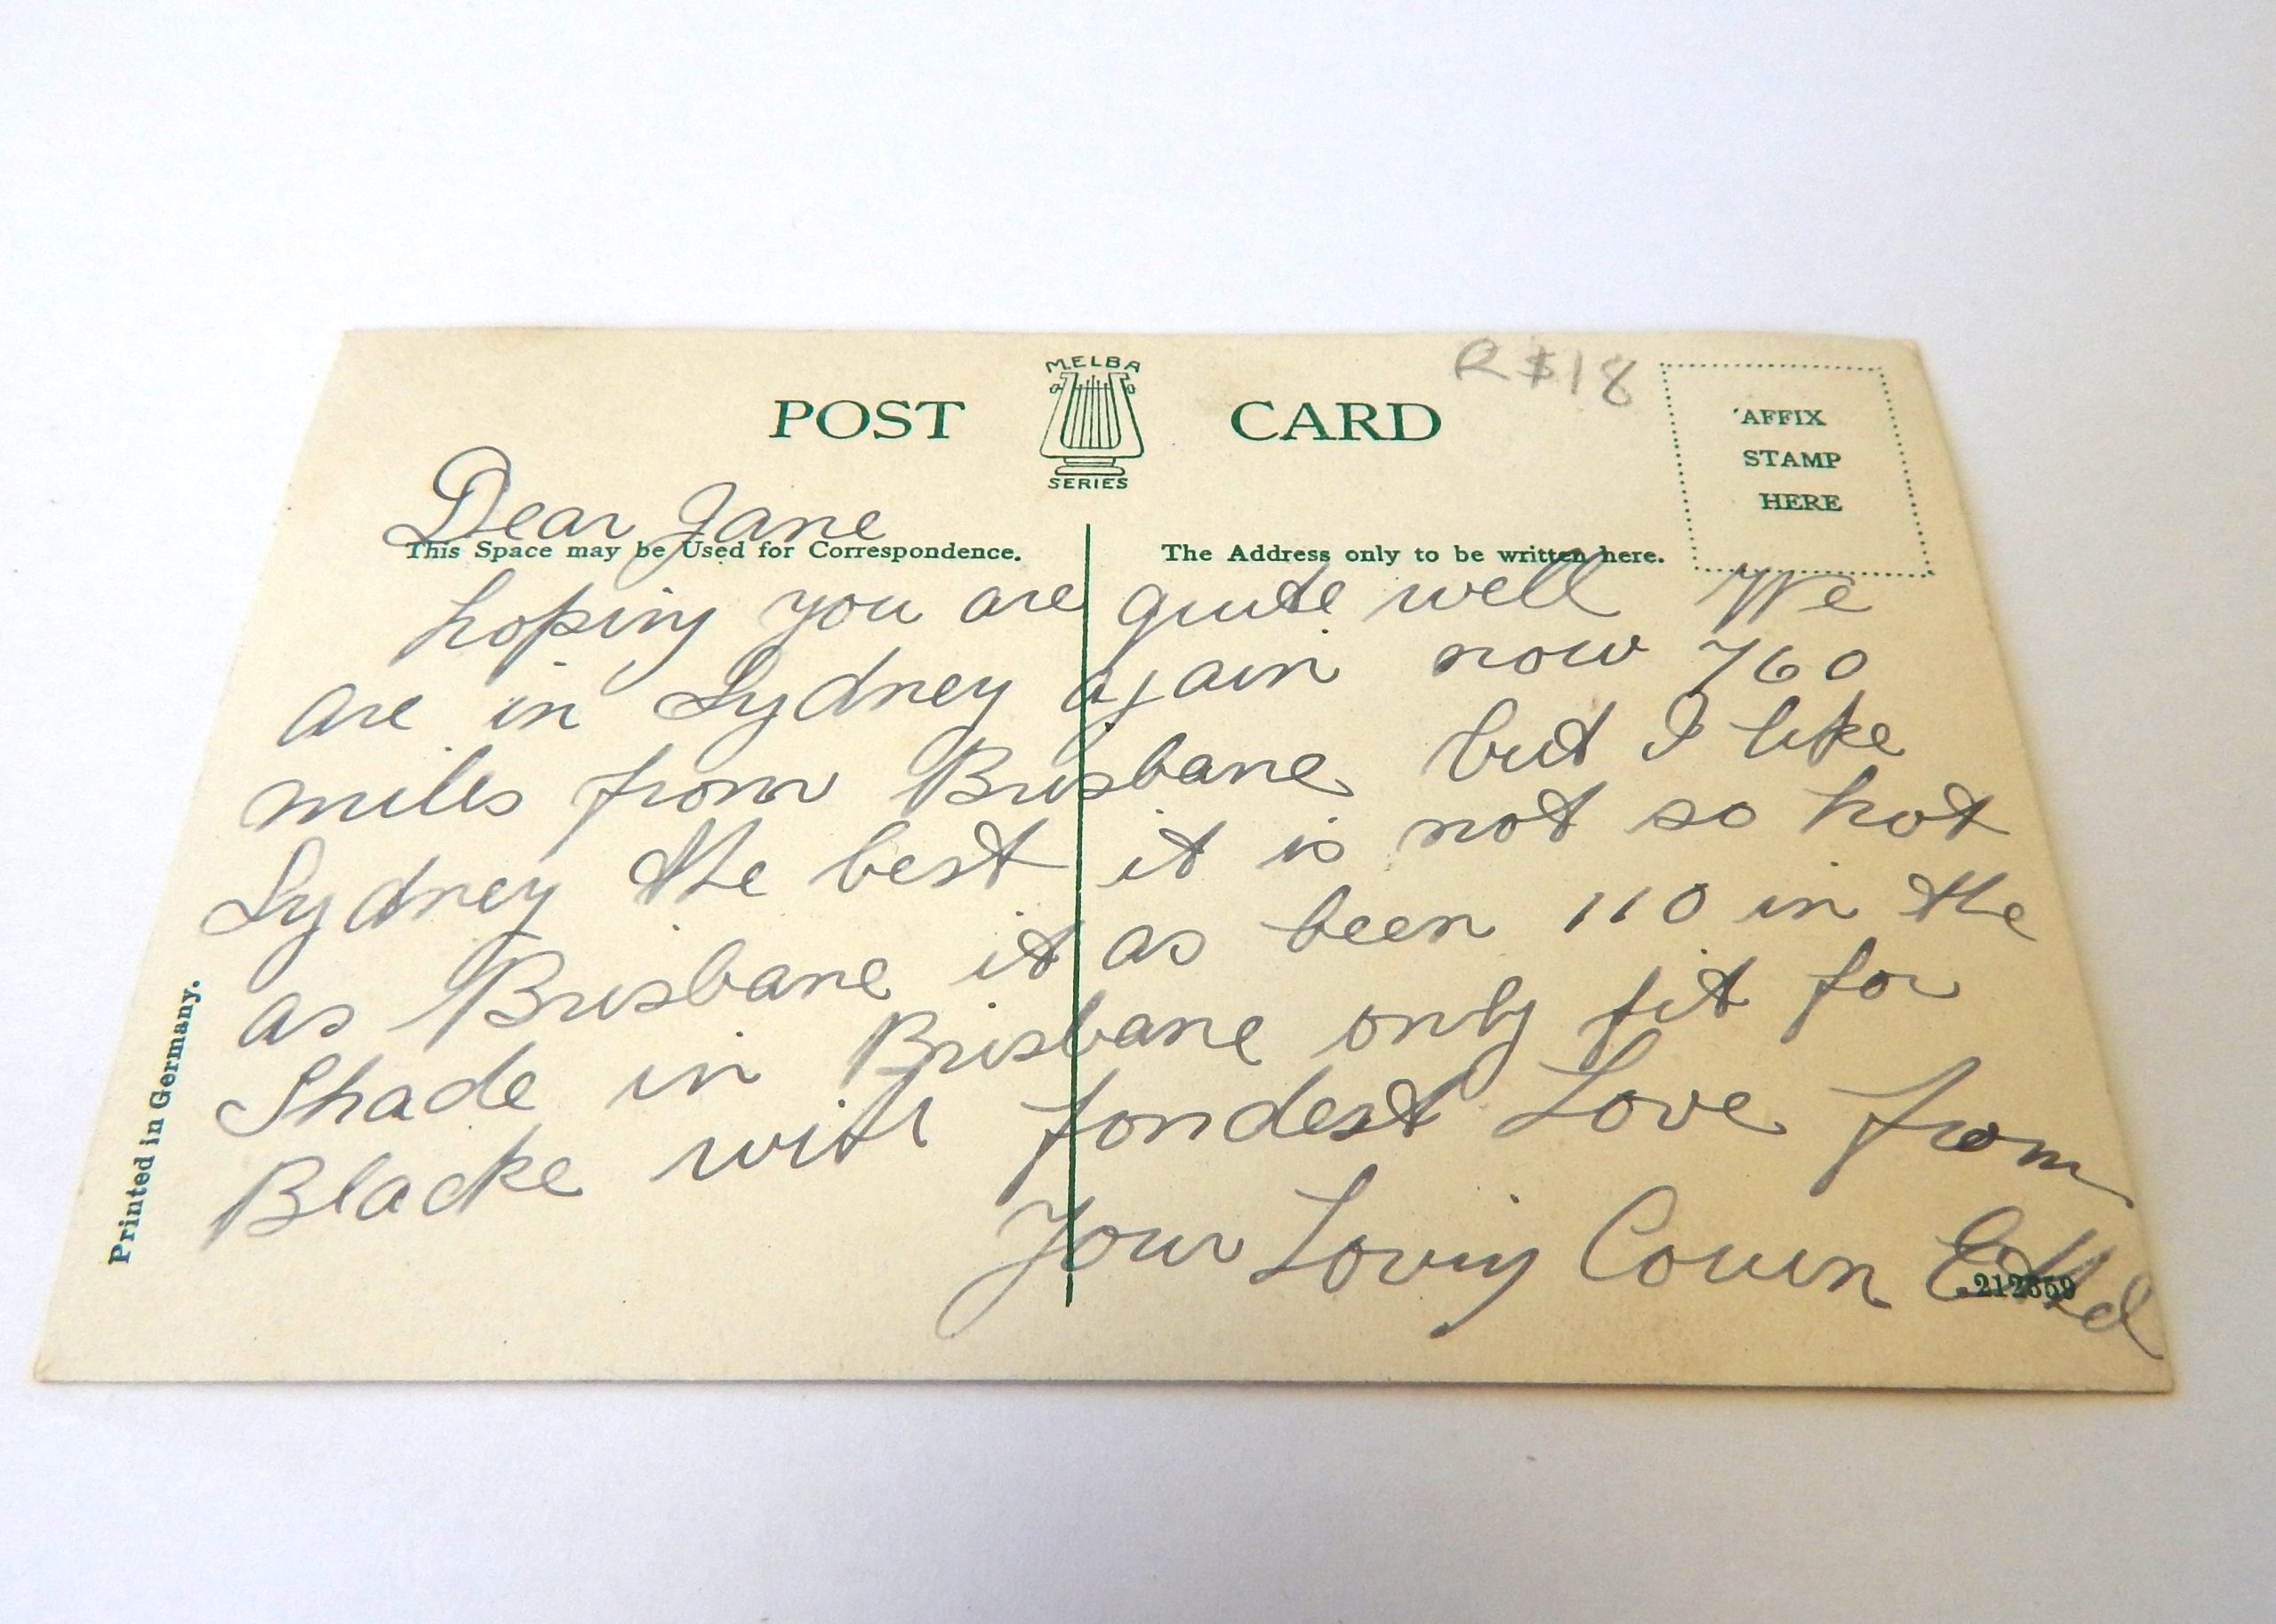 R $18
MELBA
POST CARD
SERIES
AFFIX
STAMP
HERE
Dear Jane
This Space may be Used for Correspondence.
The Address only to be written here.
hoping you are quite well We
are in Sydney again now 760
miles from Brisbane but I like
Sydney the best it is not so hot
as Brisbane it as been 110 in the
Shade in Brisbane only fit for
Blacke with fondest Love from
Your Loving Cousin
Printed in Germany.